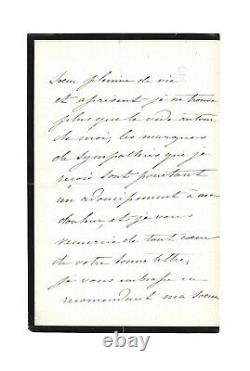 soeur pleine de vie
et apresent je ne trouve
plus que le vide autour
de moi, les marques
de sympathie que je
reçois sont pourtant
un adoucissement à ma
douleur, et je vous
remercie de tout coeur
de votre bonne lettre,
je vous embrasse en
recomendant ma soeur
© ebay.com